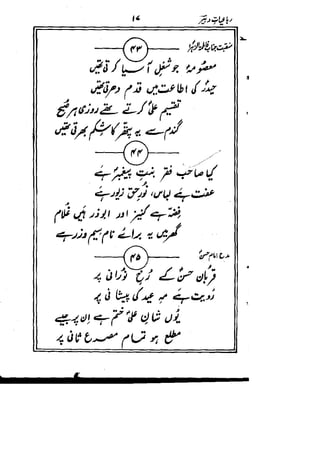 رباعیات دبیر ۱۷
۴۳
معصومہؑ جو شغل آسیا کرتی تھیں
حیدرؑ کی اطاعت میں قدم دھرتی تھیں
تقسیم علیؑ کرتے تھے روزی ہر صبح
گندم سے یہ پتھر کا شکم بھرتی تھیں
۴۴
کیا صاحب فقر بنت پیغمبرؐ ہے
عفت ہے لباس، نور حق زیور ہے
فضہؓ ہے کنیز اور ابوذر ہیں غلام
گھر میں یہ برائے نام سیم و زر ہے
مدح امام حسنؑ
۴۵
قربان حسنؑ کے رخ نورانی پر
رویت ہے مہ عید کی پیشانی پر
یوں شان علیؑ ختم ہے ان پر جیسے
مطلع ہو تمام مصرع ثانی پر